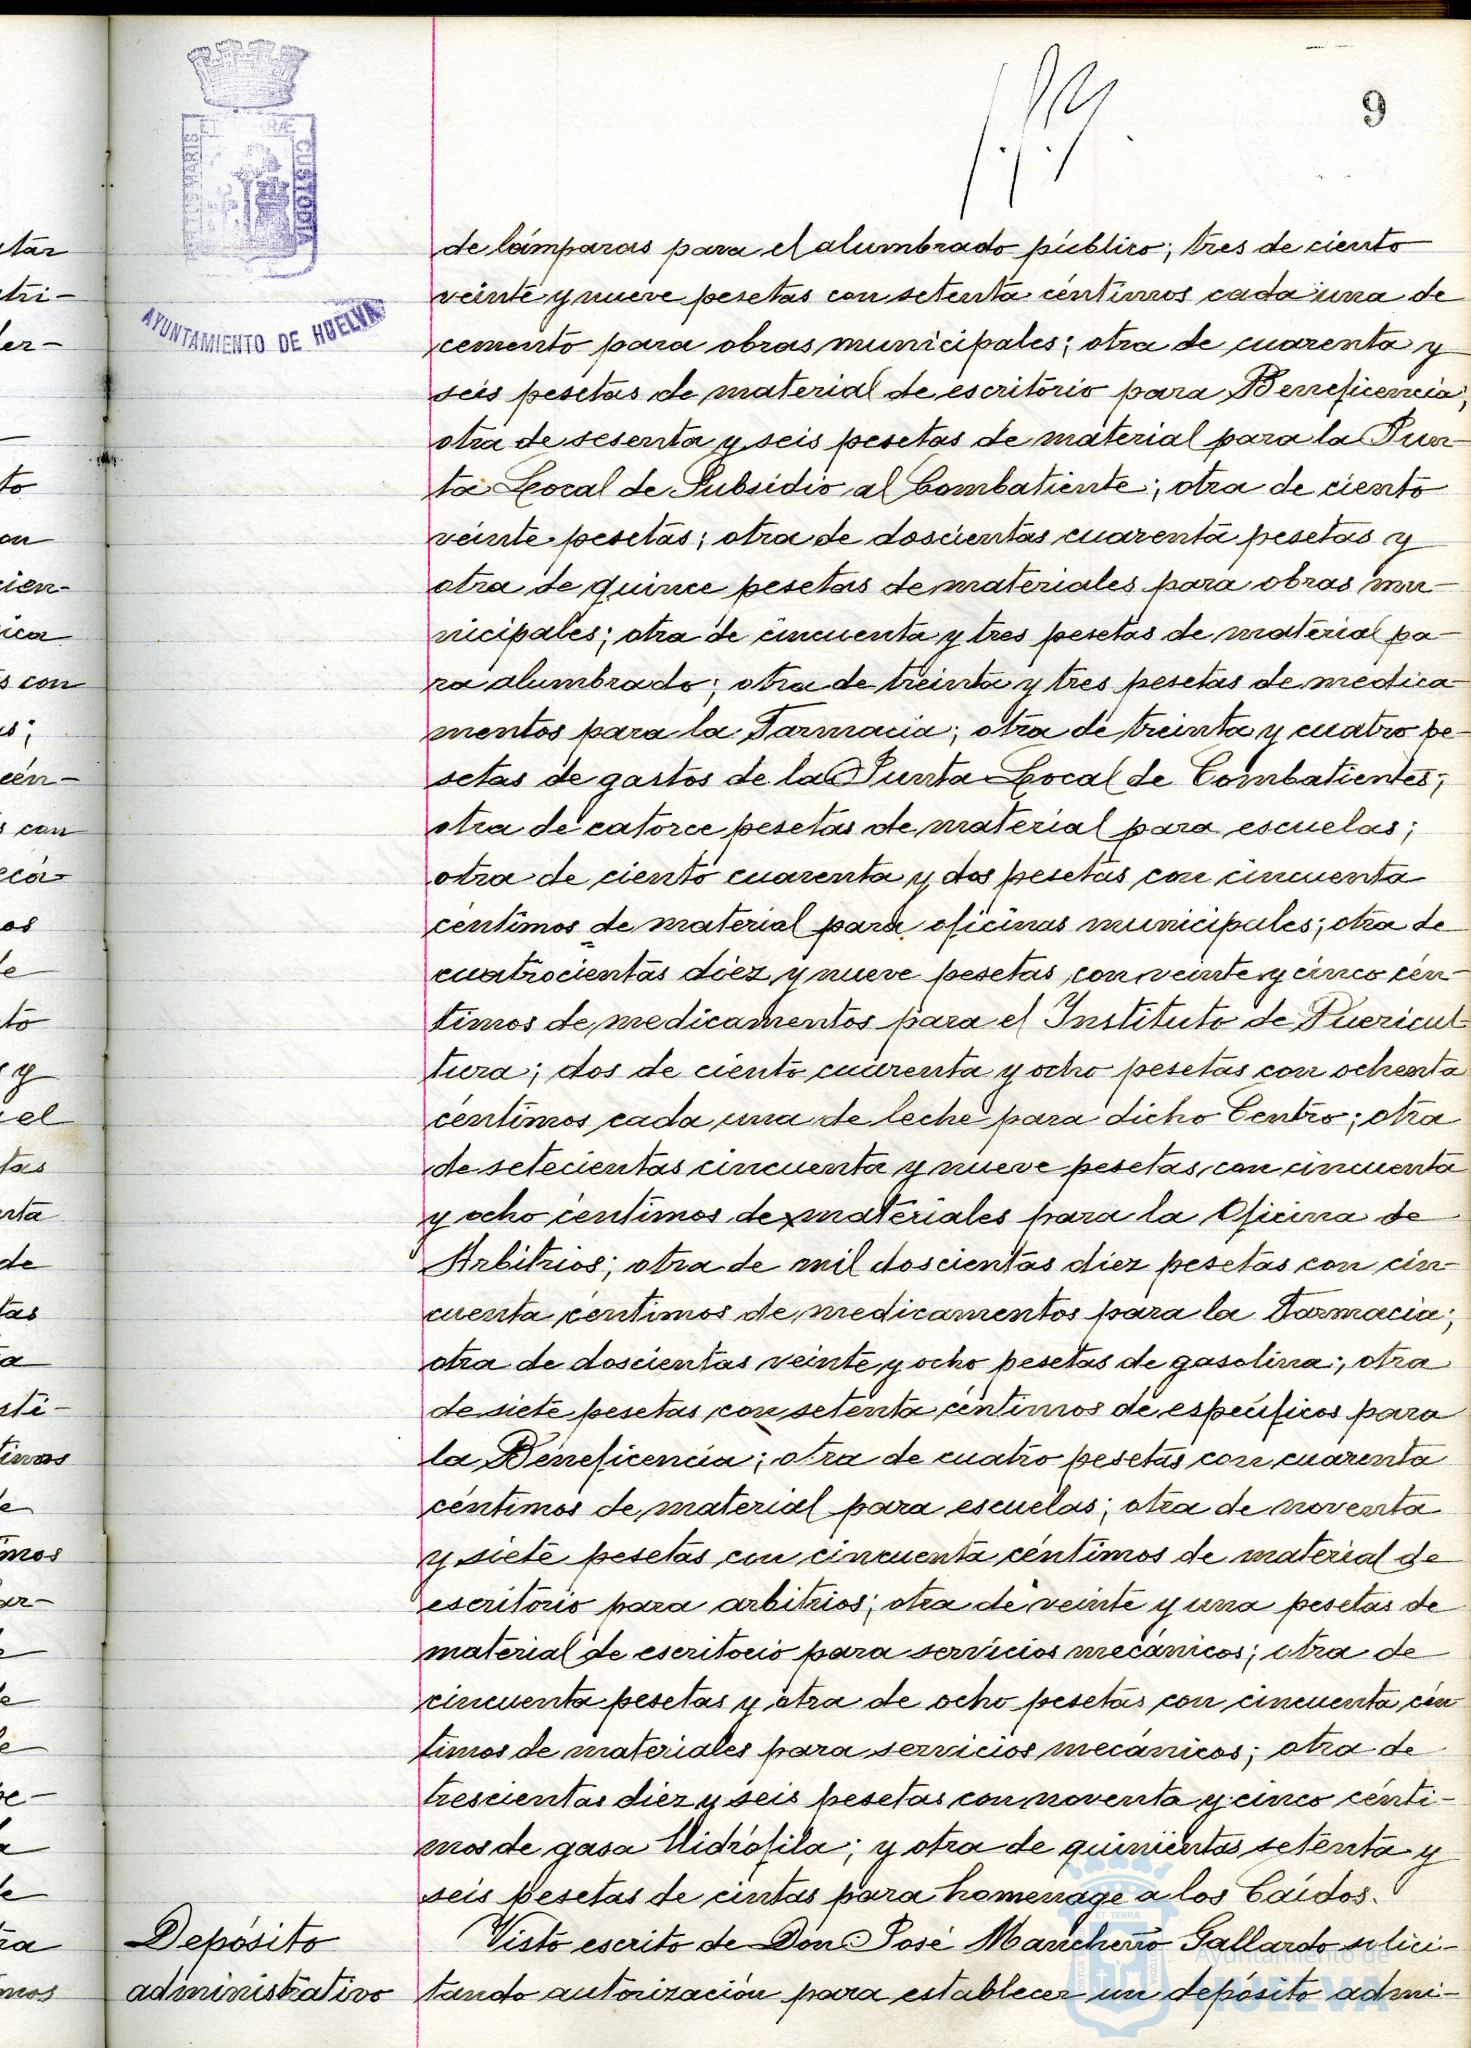 9
ET TERRÆ
CUSTODIA
AYUNTAMIENTO DE HUELVA
de lámparas para el alumbrado público; tres de ciento
veinte y nueve pesetas con setenta céntimos cada una de
cemento para obras municipales; otra de cuarenta y
seis pesetas de material de escritorio para Beneficencia;
otra de sesenta y seis pesetas de material para la Jun-
ta Local de Subsidio al Combatiente; otra de ciento
veinte pesetas; otra de doscientas cuarenta pesetas y
otra de quince pesetas de materiales para obras mu-
nicipales; otra de cincuenta y tres pesetas de material pa-
ra alumbrado; otra de treinta y tres pesetas de medica-
mentos para la Farmacia; otra de treinta y cuatro pe-
setas de gastos de la Junta Local de Combatientes;
otra de catorce pesetas de material para escuelas;
otra de ciento cuarenta y dos pesetas con cincuenta
céntimos de material para oficinas municipales; otra de
cuatrocientas diez y nueve pesetas con veinte y cinco cén-
timos de medicamentos para el Instituto de Puericul-
tura; dos de ciento cuarenta y ocho pesetas con ochenta
céntimos cada una de leche para dicho Centro; otra
de setecientas cincuenta y nueve pesetas con cincuenta
y ocho céntimos de materiales para la Oficina de
Arbitrios; otra de mil doscientas diez pesetas con cin-
cuenta céntimos de medicamentos para la Farmacia;
otra de doscientas veinte y ocho pesetas de gasolina; otra
de siete pesetas con setenta céntimos de específicos para
la Beneficencia; otra de cuatro pesetas con cuarenta
céntimos de material para escuelas; otra de noventa
y siete pesetas con cincuenta céntimos de material de
escritorio para arbitrios; otra de veinte y una pesetas de
material de escritorio para servicios mecánicos; otra de
cincuenta pesetas y otra de ocho pesetas con cincuenta cén
timos de materiales para servicios mecánicos; otra de
trescientas diez y seis pesetas con noventa y cinco cénti-
mos de gasa hidrófila; y otra de quinientas setenta y
seis pesetas de cintas para homenage a los Caídos.
Depósito
administrativo
Visto escrito de Don José Mancheño Gallardo solici-
tando autorización para establecer un depósito admi-
Ayuntamiento de
HUELVA